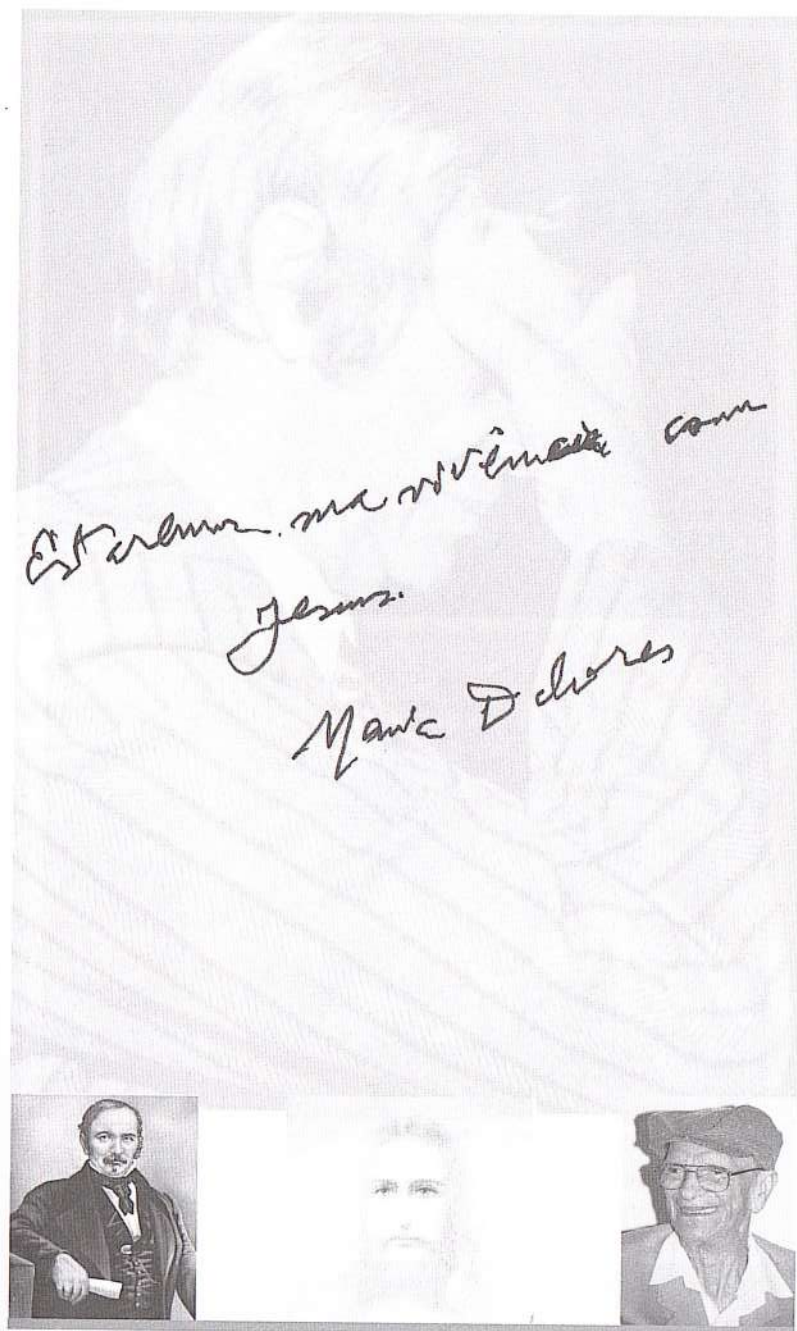 Estaremos na vivência com
Jesus.
Maria Dolores